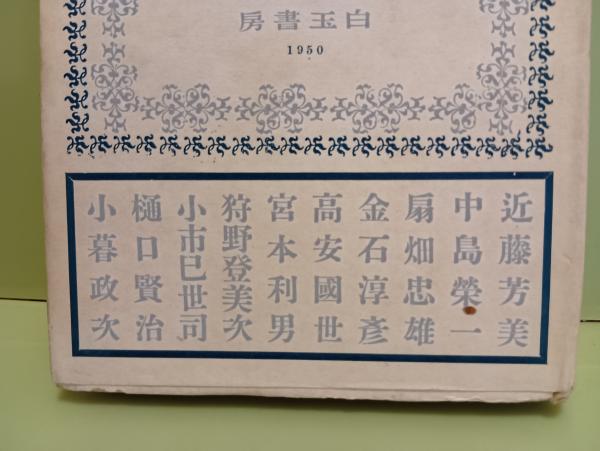 白玉書房
1950
近藤芳美
中島榮一
扇畑忠雄
金石淳彥
高安國世
宮本利男
狩野登美次
小市巳世司
樋口賢治
小暮政次